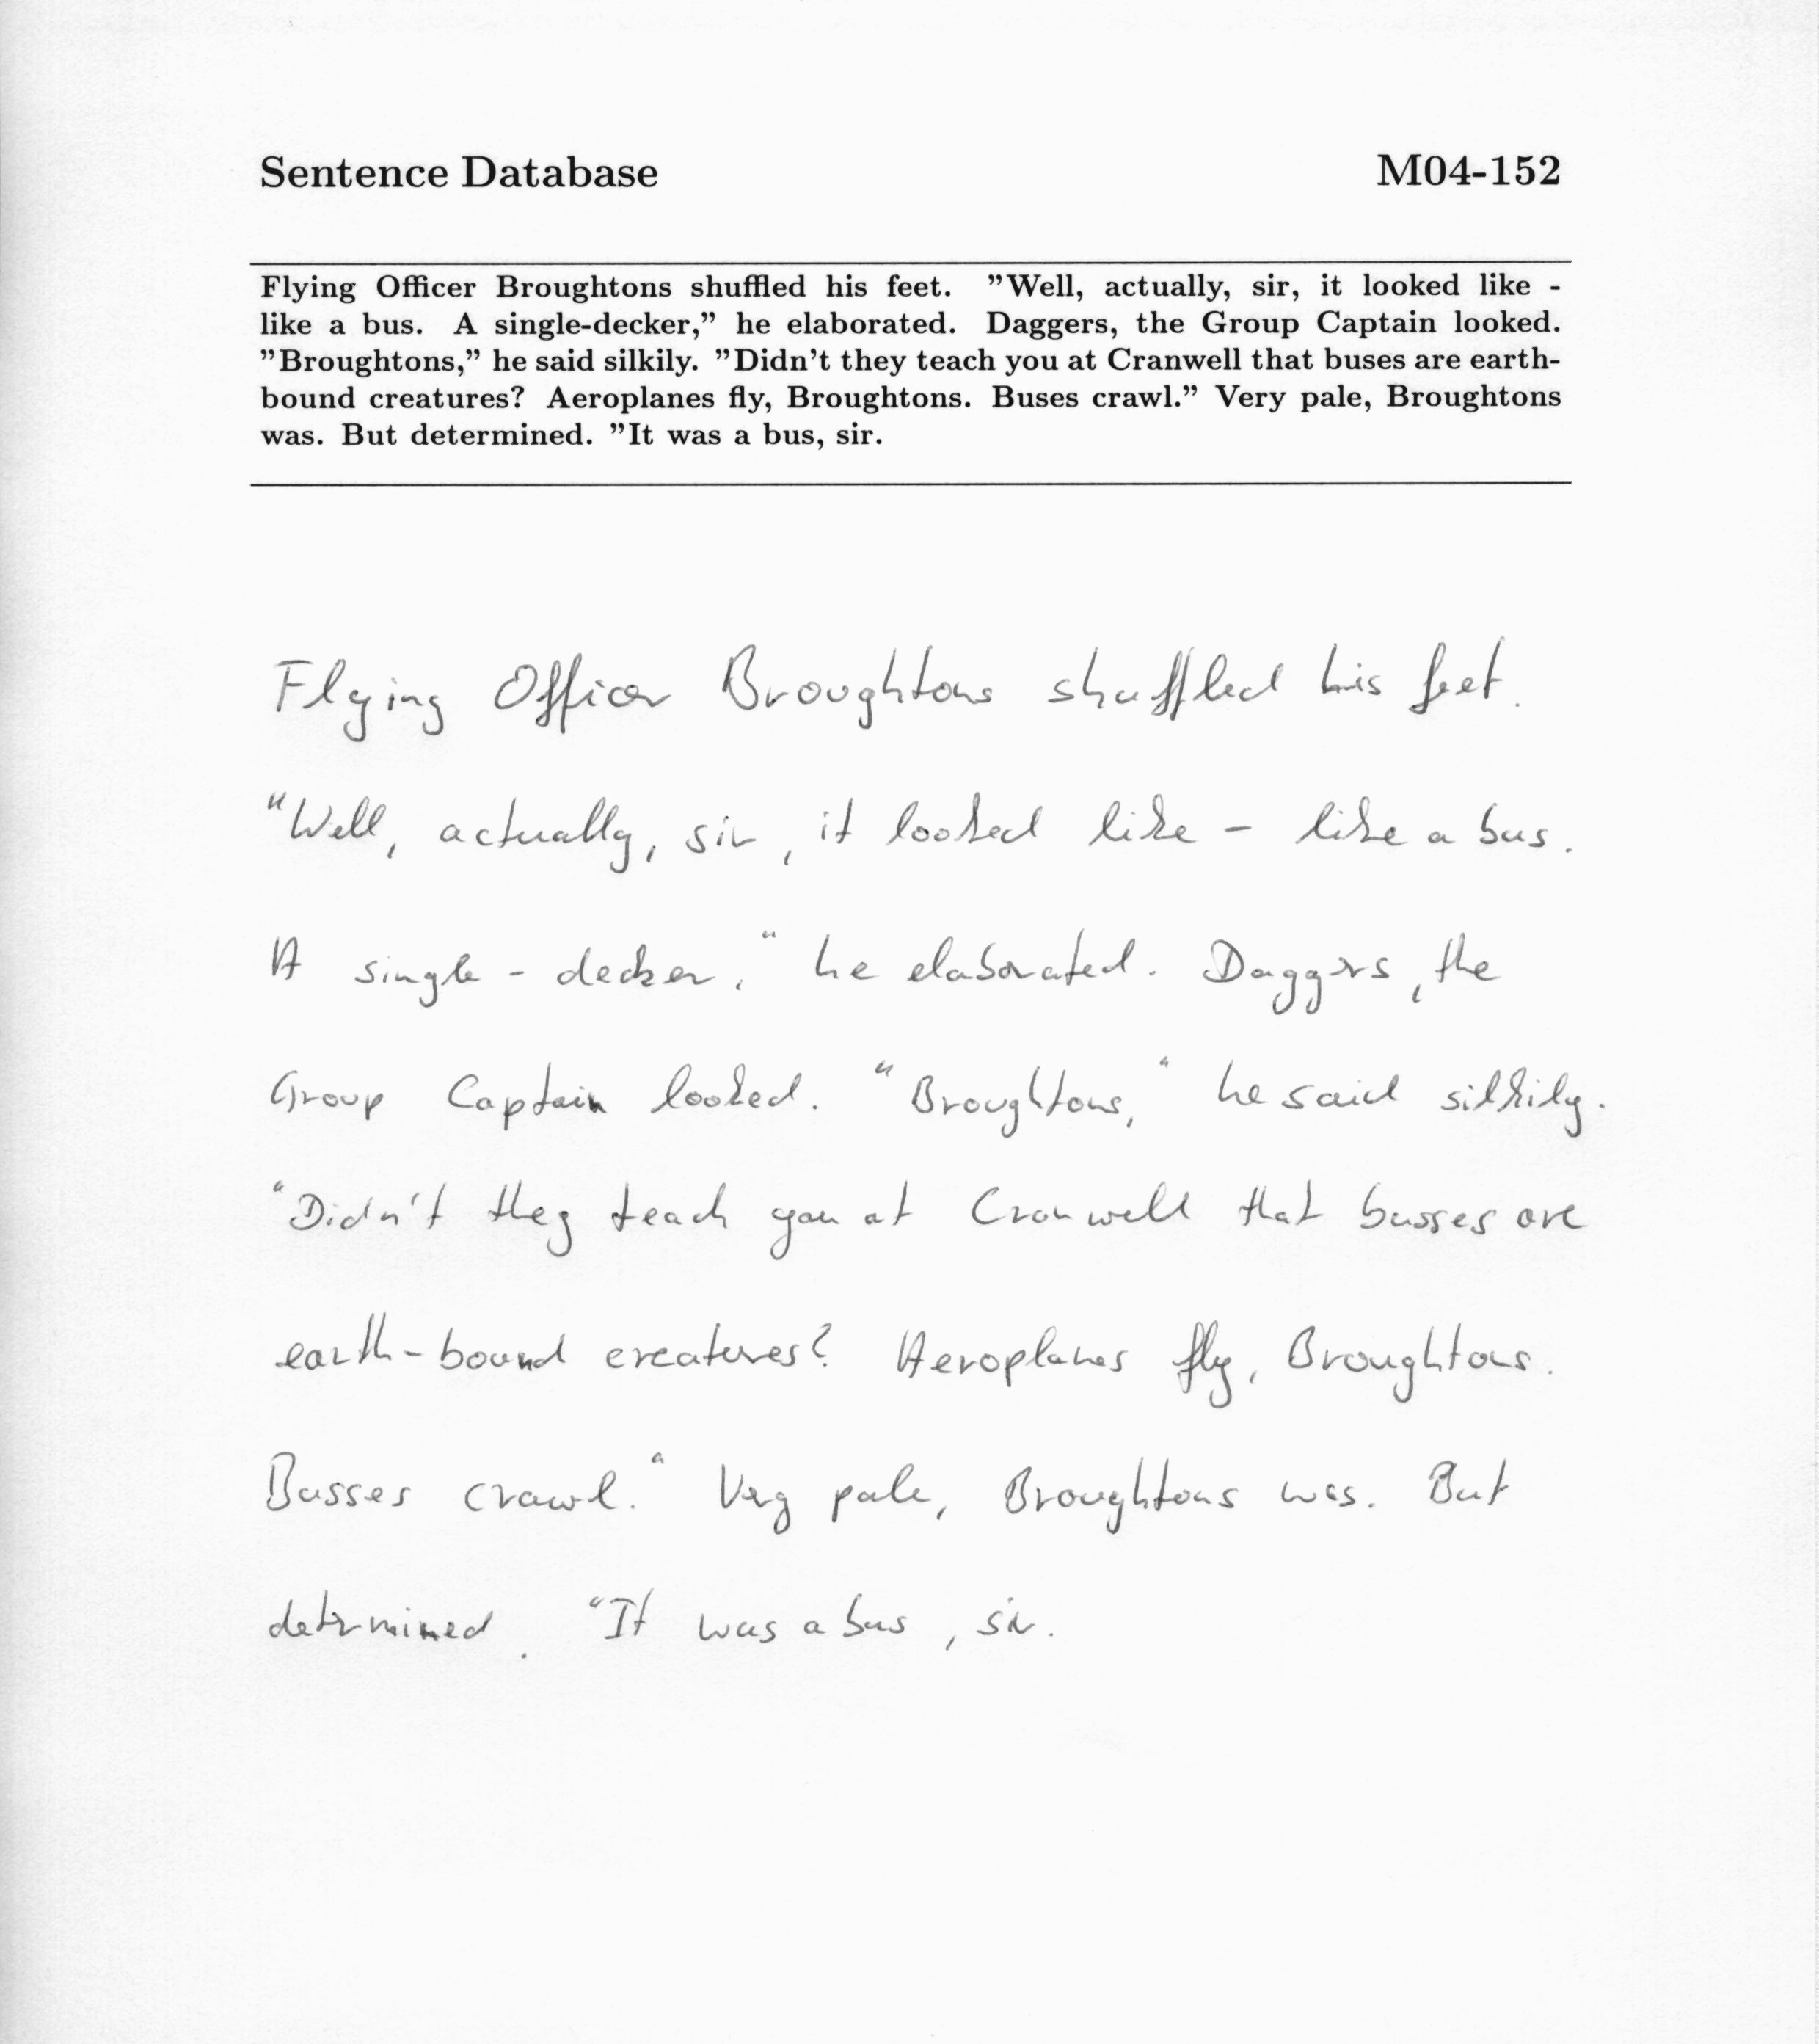 Sentence Database M04-152
Flying Officer Broughtons shuffled his feet. ”Well, actually, sir, it looked like -
like a bus. A single-decker,” he elaborated. Daggers, the Group Captain looked.
”Broughtons,” he said silkily. ”Didn’t they teach you at Cranwell that buses are earth-
bound creatures? Aeroplanes fly, Broughtons. Buses crawl.” Very pale, Broughtons
was. But determined. ”It was a bus, sir.
Flying Officer Broughtons shuffled his feet.
"Well, actually, sir, it looked like - like a bus.
A single - decker," he elaborated. Daggers, the
Group Captain looked. "Broughtons," he said silkily.
"Didn't they teach you at Cranwell that busses are
earth-bound creatures? Aeroplanes fly, Broughtons.
Busses crawl." Very pale, Broughtons was. But
determined. "It was a bus, sir.